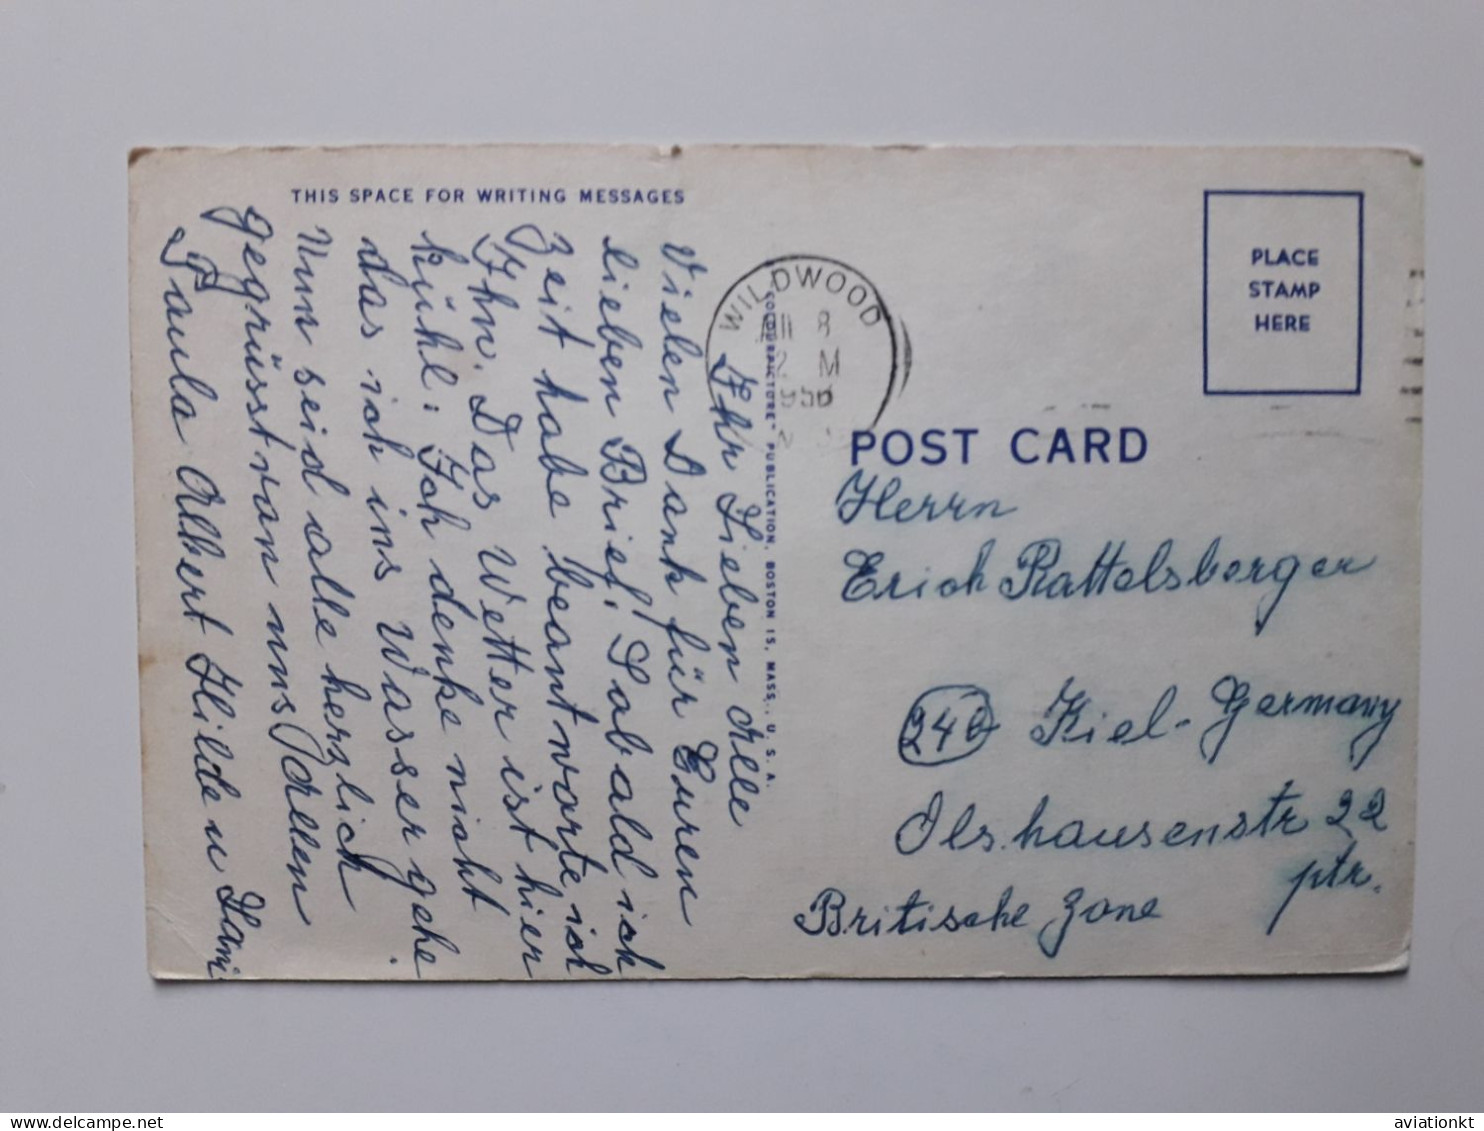 THIS SPACE FOR WRITING MESSAGES
Ihr Lieben Alle
Vielen Dank für Euren
lieben Brief! Sobald ich
Zeit habe beantworte ich
Ihn. Das Wetter ist hier
kühl. Ich denke nicht
das ich ins Wasser gehe.
Nun seid alle herzlich
gegrüsst von uns Allen
Paula Albert Hilde u
WILDWOOD
8
2 M
"COLOURPICTURE" PUBLICATION, BOSTON 15, MASS., U. S. A.
PLACE
STAMP
HERE
POST CARD
Herrn
Erich Rattelsberger
240 Kiel-Germany
Olshausenstr 22
ptr.
Britische Zone
aviationkt